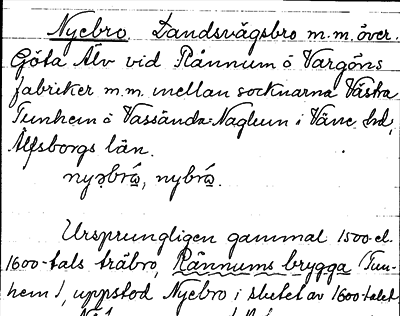 Nyebro Landsvägsbro m.m. över
Göta Älv vid Rånnum o Vargöns
fabriker m.m. mellan socknarna Västra
Tunhem o Vassända-Naglum i Väne hd,
Älfsborgs län.
nyəbrω̄, nybrω̄.
Ursprungligen gammal 1500-el.
1600-tals träbro, Rånnums brygga (Tun-
hem), uppstod Nyebro i slutet av 1600talet